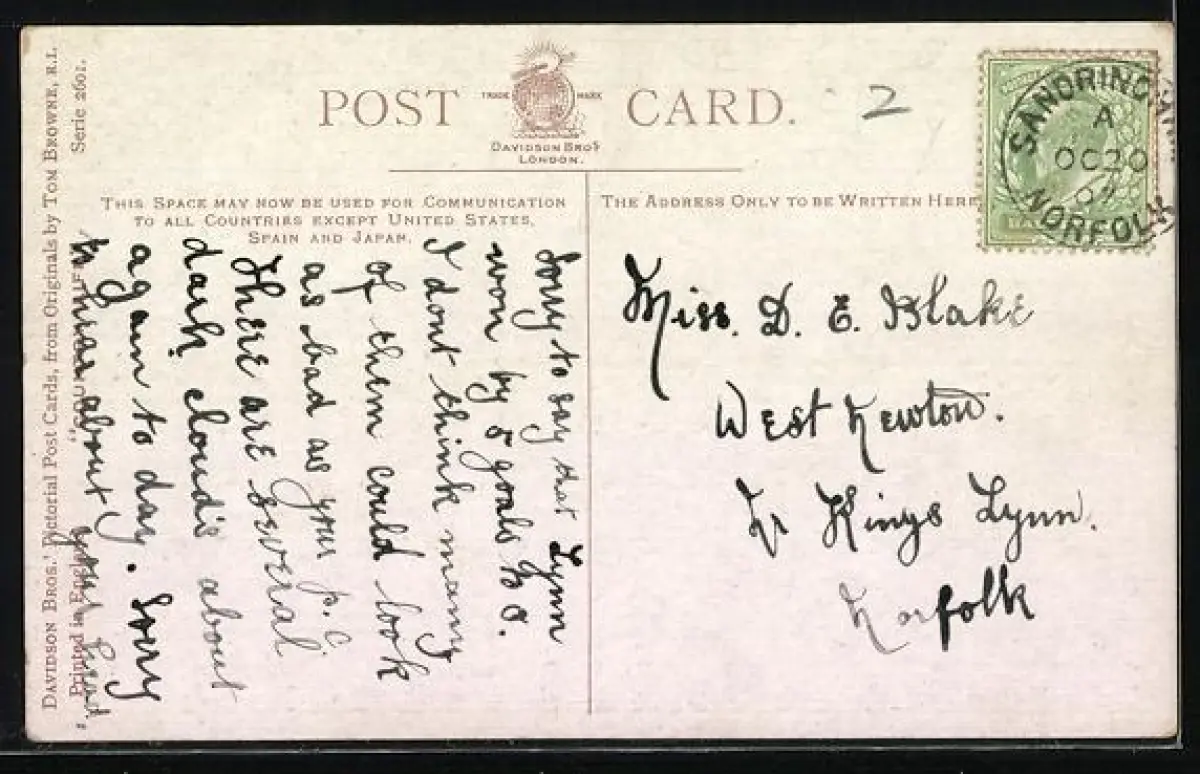 POST CARD.
TRADE MARK
DAVIDSON BROS
LONDON.
2
SANDRINGHAM
A
OC 20
NORFOLK
THIS SPACE MAY NOW BE USED FOR COMMUNICATION
TO ALL COUNTRIES EXCEPT UNITED STATES,
SPAIN AND JAPAN.
THE ADDRESS ONLY TO BE WRITTEN HERE
Sorry to say that Lynn
won by 5 goals to 0.
I dont think many
of them could look
as bad as your p.c.
There are several
dark clouds about
again to day. Sorry
to hear about your head.
Miss. D. E. Blake
West Newton.
Nr Kings Lynn.
Norfolk
DAVIDSON BROS.' Pictorial Post Cards, from Originals by TOM BROWNE, R.I.
Printed in
Serie 2601.